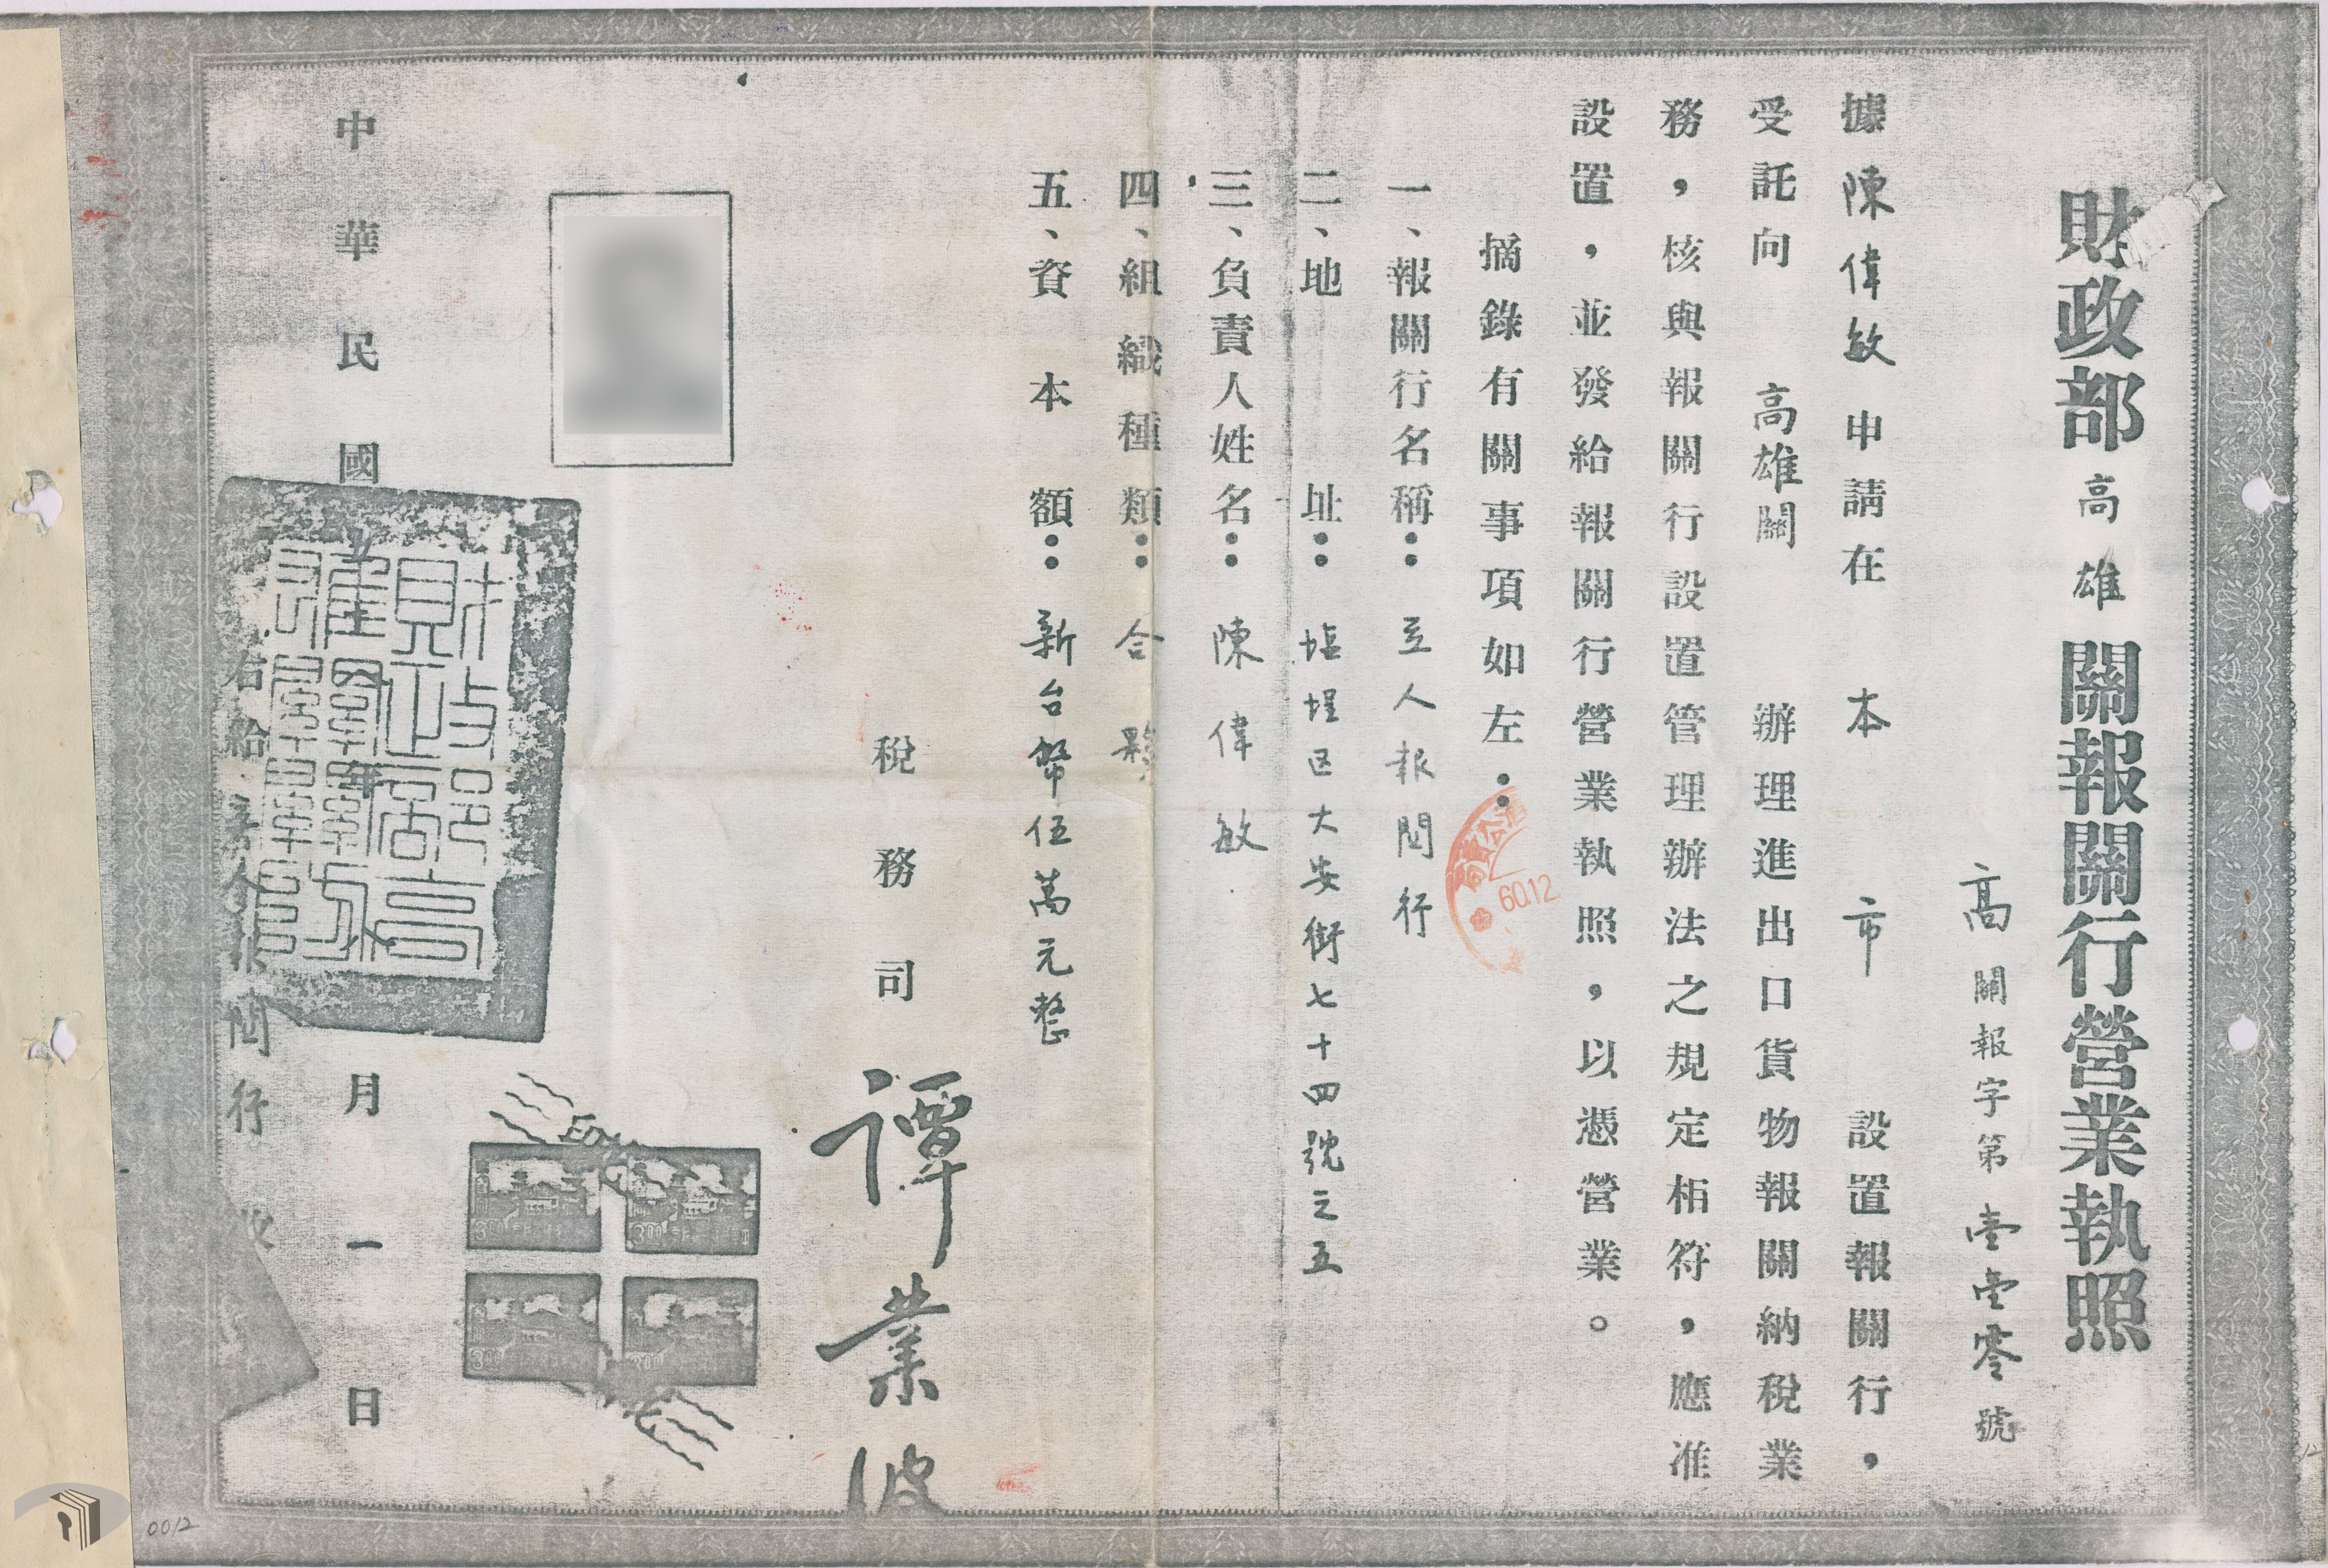 財政部高雄關報關行營業執照
高關報字第壹壹零號
據陳偉敏申請在 本 市 設置報關行，
受託向 高雄關 辦理進出口貨物報關納稅業
務，核與報關行設置管理辦法之規定相符，應准
設置，並發給報關行營業執照，以憑營業。
摘錄有關事項如左：
一、報關行名稱：立人報関行
二、地 址：塩埕区大安街七十四號之五
三、負責人姓名：陳偉敏
四、組織種類：合夥
五、資本額：新台幣伍萬元整
稅務司 譚業
中華民國 年 月一日
右給 報関行 收
6012
300
300
300
300
0012
12